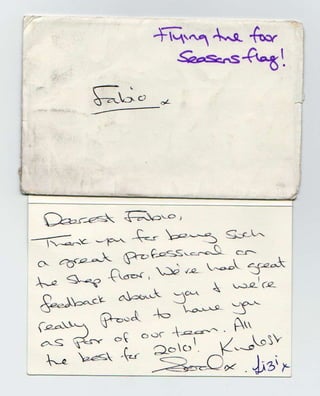 Flying the four
Seasons flag!
Fabio x
Dearest Fabio,
Thank you for being such
a great professional on
the shop floor. We've had great
feedback about you & we're
really proud to have you
as part of our team. All
the best for 2010! Kindest
x. Lizi x